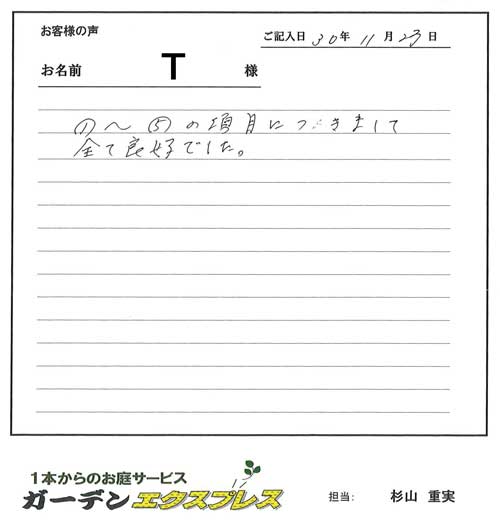 お客様の声
ご記入日 30年 11月 23日
お名前 T 様
①〜⑤の項目につきまして
全て良好でした。
1本からのお庭サービス
ガーデンエクスプレス
担当: 杉山 重実